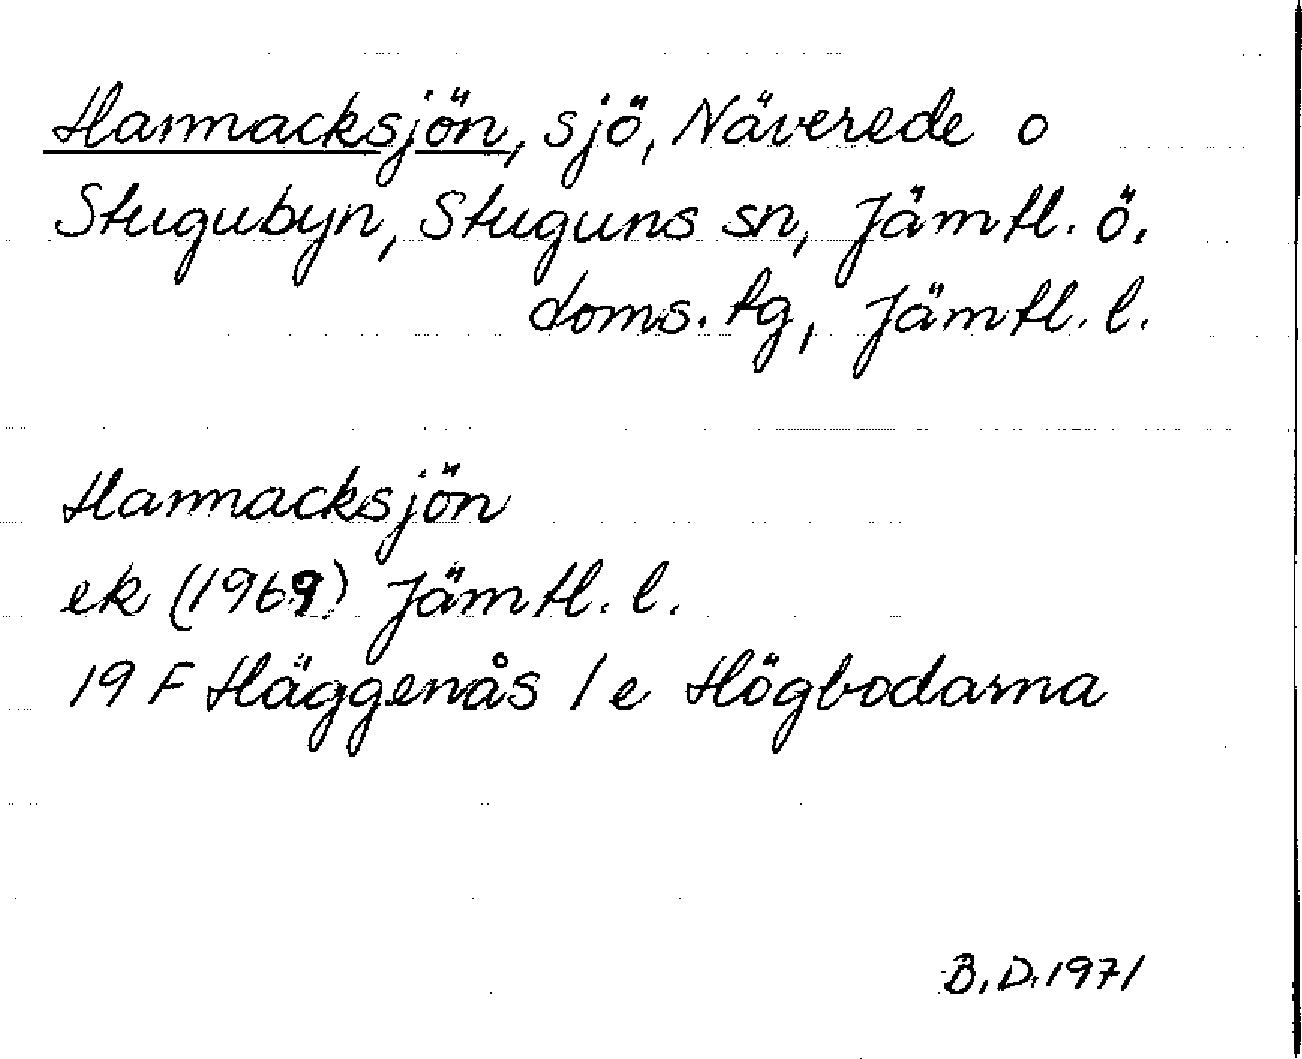 Harmacksjön, sjö, Näverede o
Stugubyn, Stuguns sn, Jämtl. ö.
doms. tg, Jämtl. l.
Harmacksjön
ek (1969) Jämtl. l.
19 F Häggenås 1 e Högbodarna
B.D. 1971